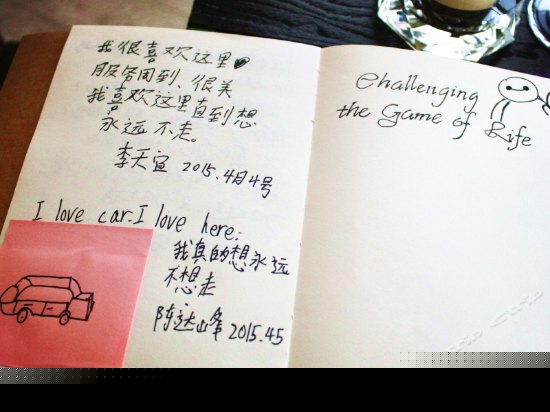 我很喜欢这里
服务周到、很美
我喜欢这里直到想
永远不走。
李天宜 2015.4月4号
I love car. I love here:
我真的想永远
不想走
陈达峰 2015.4.5
Challenging
the Game of Life